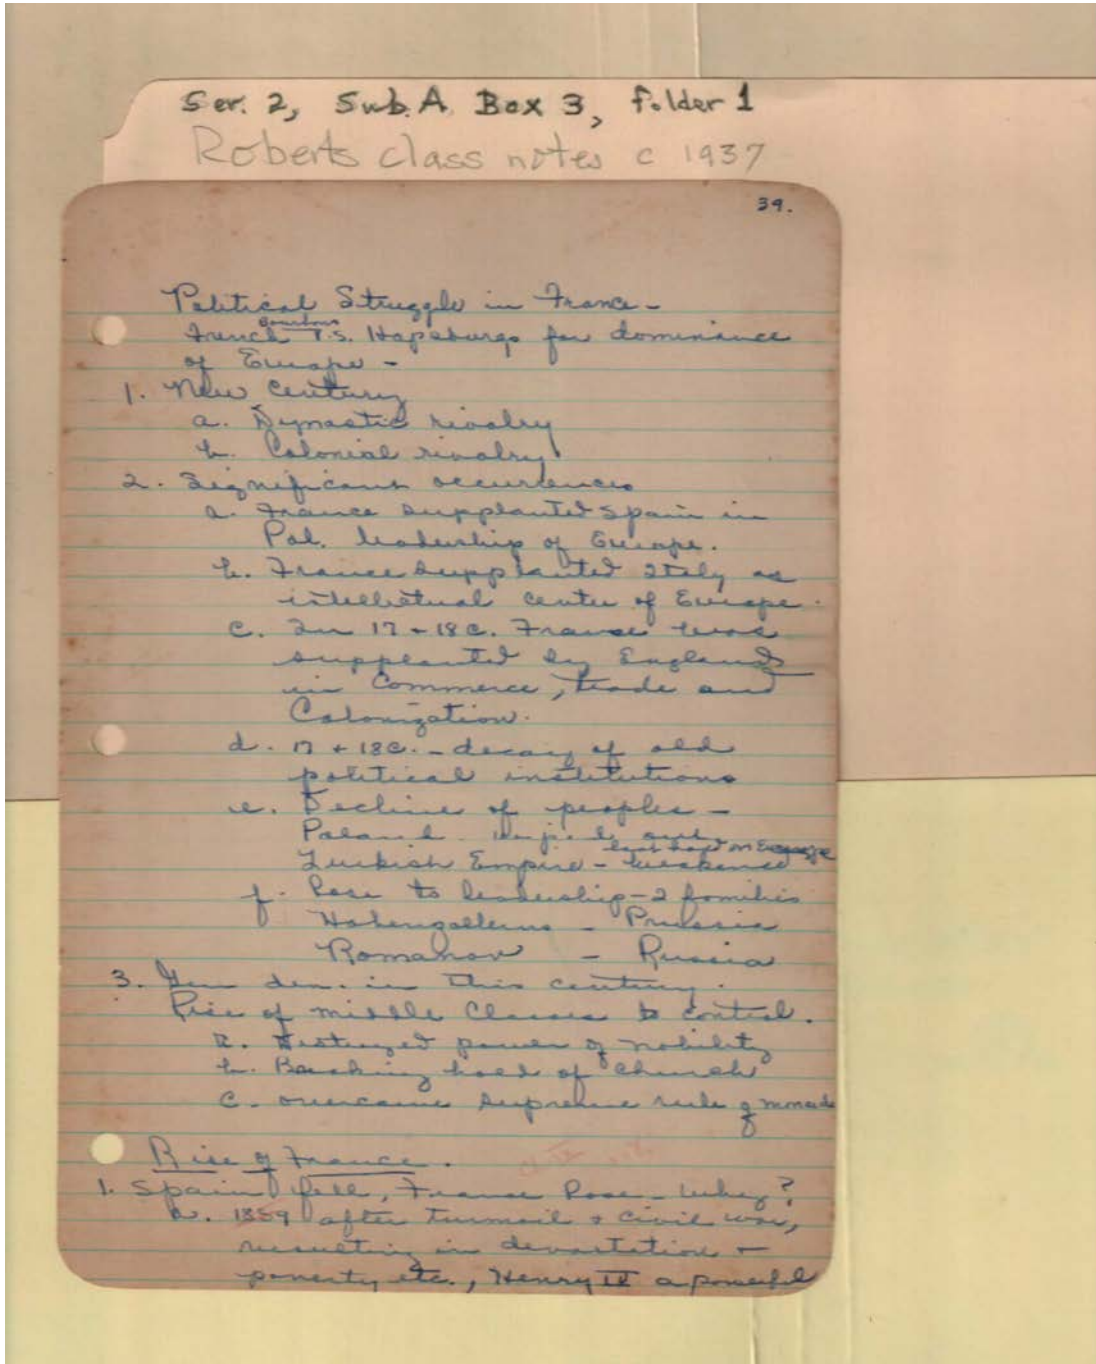 Ser. 2, Sub. A. Box 3, folder 1
Roberts class notes c 1937
39.
Political Struggle in France -
Bourbons
French V.S. Hapsburgs for dominance
of Europe -
1. New Century
a. Dynastic rivalry
b. Colonial rivalry
2. Significant occurrences
a. France supplanted Spain in
Pol. leadership of Europe.
b. France supplanted Italy as
intellectual center of Europe.
c. In 17 + 18 c. France was
supplanted by England
in Commerce, trade and
Colonization.
d. 17 + 18 c. - decay of old
political institutions
e. Decline of peoples -
Poland
lost hold on Europe
Turkish Empire - weakened
f. Rose to leadership - 2 families
Hohenzollerns - Prussia
Romanov - Russia
3. Gen in this century.
Rise of middle Classes to control.
a. Destroyed power of nobility
b. Breaking hold of Church
c. overcame supreme rule of
Rise of France.
1. Spain fell, France Rose - Why?
a. after turmoil + civil war,
resulting in devastation +
poverty etc., Henry a powerful